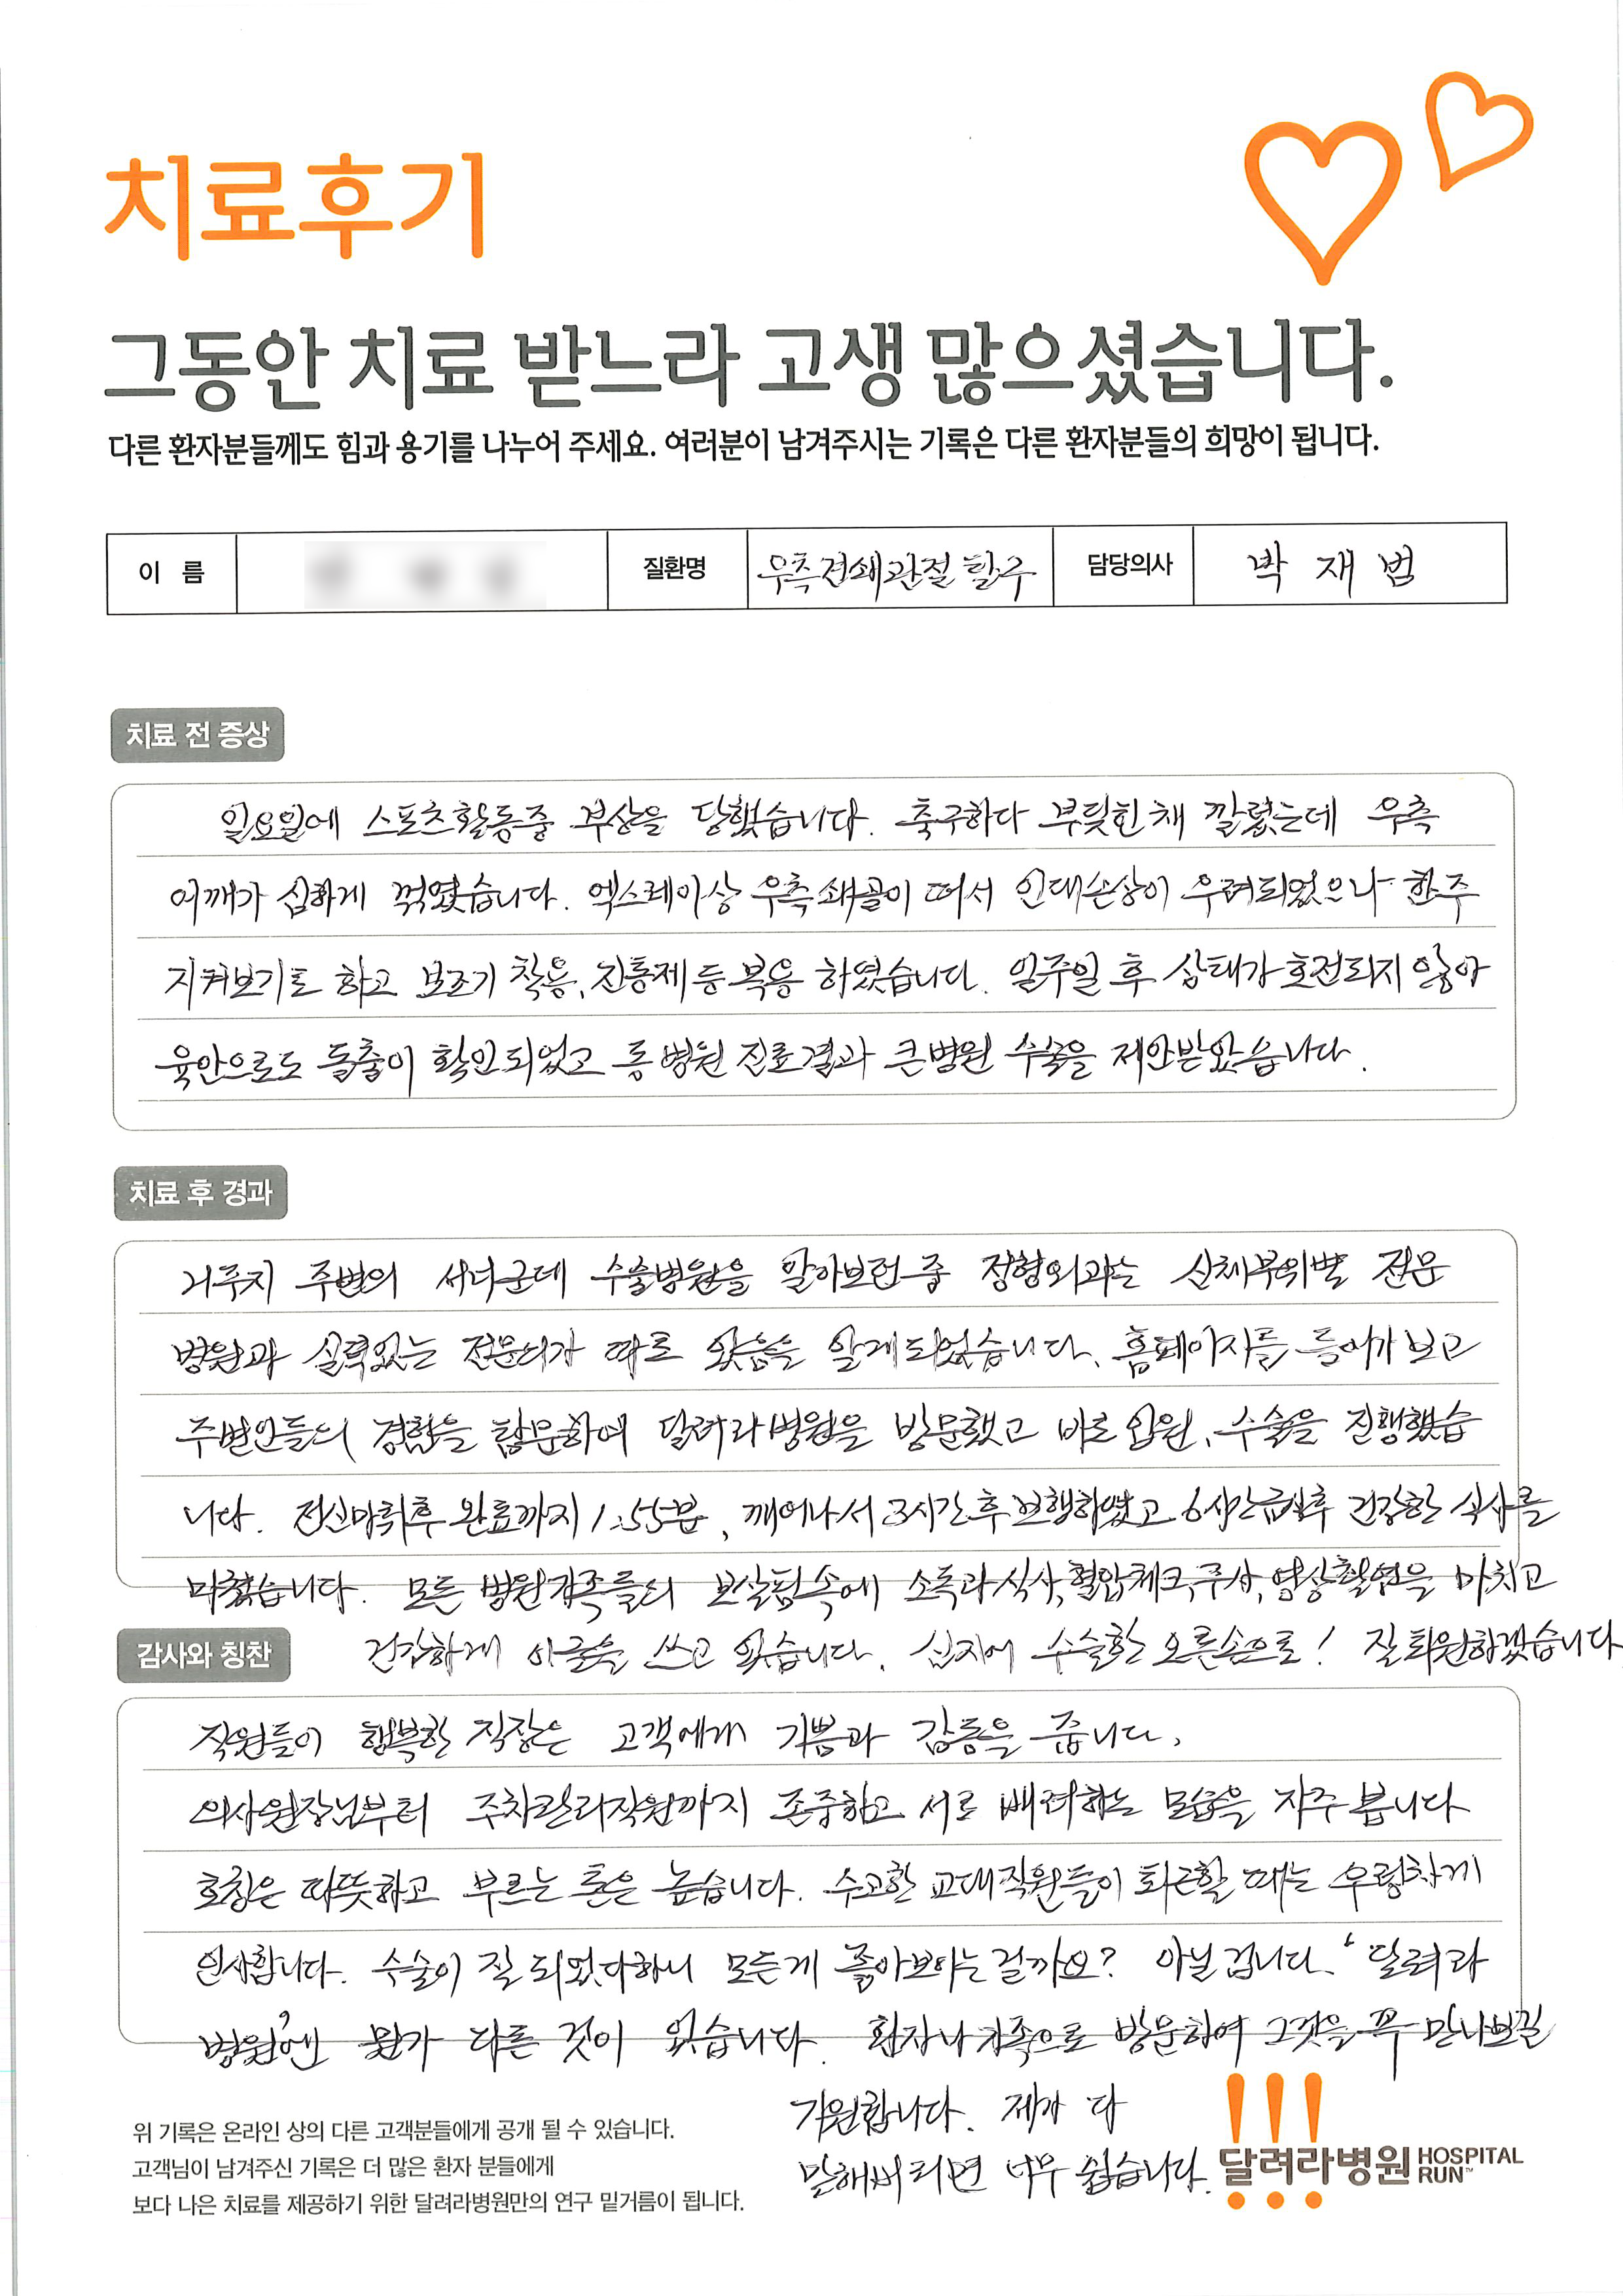 치료후기
그동안 치료 받느라 고생 많으셨습니다.
다른 환자분들께도 힘과 용기를 나누어 주세요. 여러분이 남겨주시는 기록은 다른 환자분들의 희망이 됩니다.
이 름 질환명 우측견쇄관절 탈구 담당의사 박 재 범
치료 전 증상
일요일에 스포츠활동중 부상을 당했습니다. 축구하다 부딪힌채 깔렸는데 우측
어깨가 심하게 꺾였습니다. 엑스레이상 우측쇄골이 떠서 인대손상이 우려되었으나 한주
지켜보기로 하고 보조기 착용, 진통제등 복용 하였습니다. 일주일 후 상태가 호전되지 않아
육안으로도 돌출이 확인되었고 동병원 진료결과 큰병원 수술을 제안받았습니다.
치료 후 경과
거주지 주변의 서너군데 수술병원을 알아보던 중 정형외과는 신체부위별 전문
병원과 실력있는 전문의가 따로 있음을 알게되었습니다. 홈페이지를 들어가 보고
주변인들의 경험을 탐문하여 달려라병원을 방문했고 바로 입원, 수술을 진행했습
니다. 전신마취후 완료까지 1:55분, 깨어나서 3시간후 보행하였고 6시간금식후 건강한 식사를
마쳤습니다. 모든 병원가족들의 보살핌속에 소독과 식사, 혈압체크, 주사, 영상촬영을 마치고
건강하게 이글을 쓰고 있습니다. 심지어 수술한 오른손으로! 잘 퇴원하겠습니다
감사와 칭찬
직원들이 행복한 직장은 고객에게 기쁨과 감동을 줍니다.
의사원장님부터 주차관리직원까지 존중하고 서로 배려하는 모습을 자주 봅니다
호칭은 따뜻하고 부르는 톤은 높습니다. 수고한 교대직원들이 퇴근할 때는 우렁차게
인사합니다. 수술이 잘 되었다하니 모든게 좋아보이는걸까요? 아닐겁니다. '달려라
병원'엔 뭔가 다른 것이 있습니다. 환자나 가족으로 방문하여 그것을 꼭 만나보길
기원합니다. 제가 다
말해버리면 너무 쉽습니다.
위 기록은 온라인 상의 다른 고객분들에게 공개 될 수 있습니다.
고객님이 남겨주신 기록은 더 많은 환자 분들에게
보다 나은 치료를 제공하기 위한 달려라병원만의 연구 밑거름이 됩니다.
달려라병원 HOSPITAL RUN™